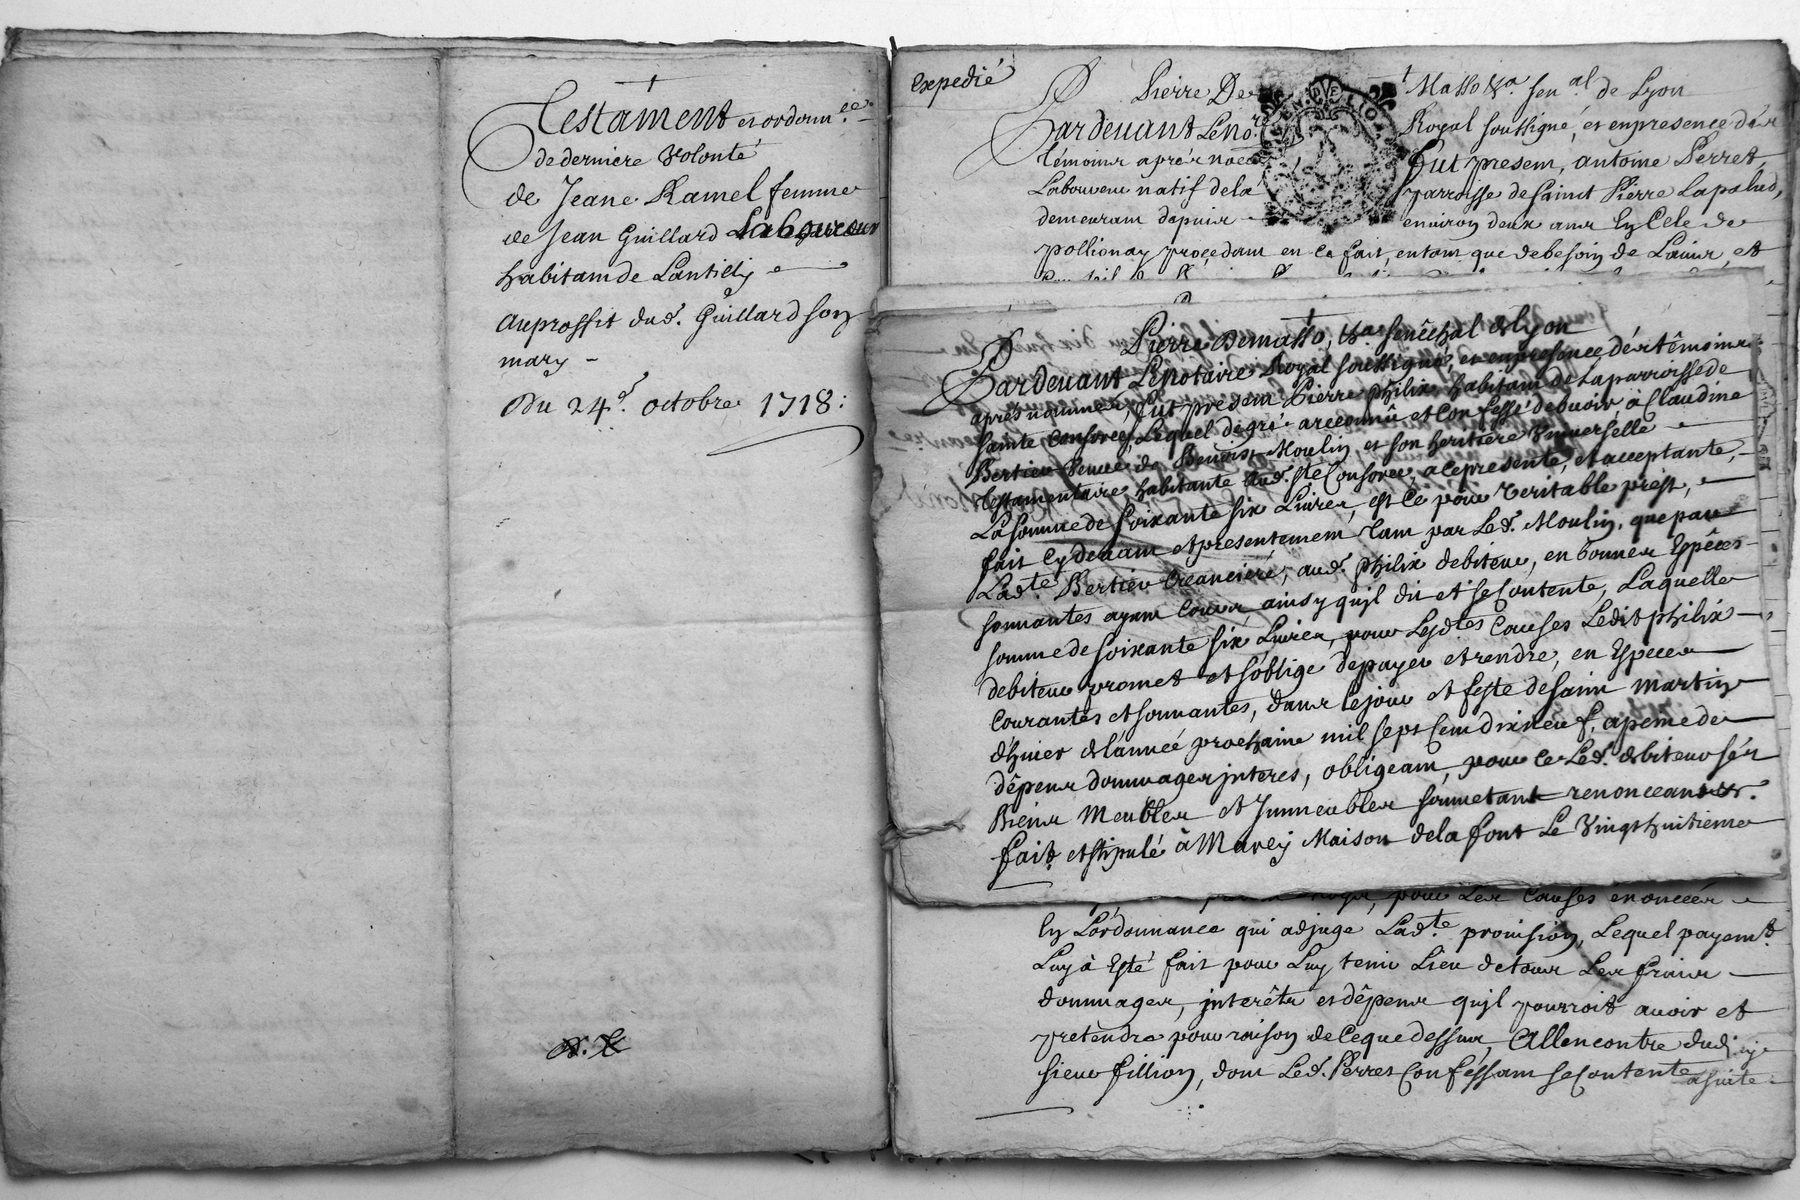 Testament et ordonn.ce
de derniere volonté
de Jeane Ramel femme
de Jean Guillard Laboureur
habitam de Lantilly
Auproffit dud. Guillard son
mary -
Du 24e. octobre 1718:
Expedié
Pierre De Masso &a sen.al de Lyon
Pardeuant Leno.re Royal soussigné, et enpresence dés
témoins aprés nom Fut presem, antoine Perret,
Laboureur natif dela parroisse de Sainct Pierre Lapalud,
demeuram depuis environ deux ans En Cele de
pollionay procedam en ce fait, entam que debesoin de Lauis, et
Pierre Demasso, &a senêchal de Lyon
Pardeuant Lenotaire Royal soussigné, et enpresence dés têmoins
aprés nommes, fut presem Pierre philix habitam de Laparroisse de
sainte Consorce, Lequel degré areconnû et confessé debuoir, a Claudine
Bertier veuue de Benoist Moulin et son heritiere Vniuerselle
testamentaire habitante aud. ste Consorce, acepresente, et acceptante,
La somme de soixante six Liures, est Ce pour veritable prest,
fait cydeuam etpresentemem tam par Led. Moulin, quepar
Lad.te Bertier Creanciere, aud. philix debiteur, en bonnes Espêces
sonnantes ayam Cours, ainsy quil dit et se Contente, Laquelle
somme de soixante six Liures, pour Lesd.tes Causes Ledit philix
debiteur promet et soblige depayer etrendre, en Especes
Courantes et sonnantes, dans lejour et feste desaint martin
d'hiuer de lánnée prochaine mil sept Cem dixneuf, apeine de
dêpens dommages jnteres, obligeam, pour ce Led. debiteur sés
Biens Meubles et Jmmeubles soumetant renonceant &.
fait et stipulé à Marcy Maison delafont Le Vingt huitieme
pour Les Causes énoncées
En L'ordonnance qui adjuge Lad.te prouision, Lequel payem.t
Luy à Esté fait pour Luy tenir Lieu detous Les fraix
dommages, jnterêts et dêpens quil pourroit auoir et
pretendre pour raison de Ceque dessus, Allencontre dudi
sieur fillion, dont Led. Perret Confessam se Contente
asuite